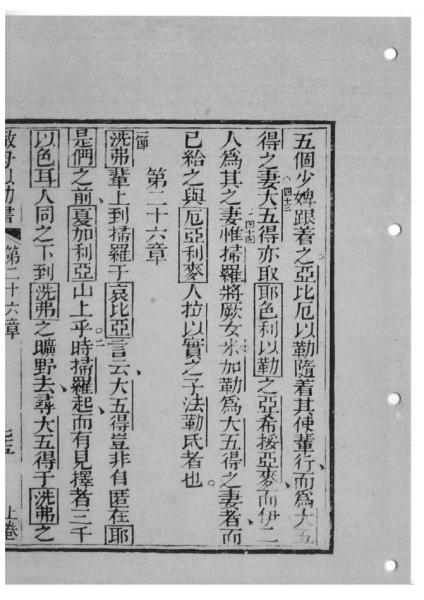 五個少婢跟着之亞比厄以勒隨着其使輩行而爲大五
得之妻大五得亦取耶色利以勒之亞希援亞麥而伊二
人爲其之妻惟掃羅將厥女米加勒爲大五得之妻者而
已給之與厄亞利麥人拉以實之子法勒氏者也
第二十六章
洗弗輩上到掃羅于哀比亞言云大五得豈非自匿在耶
是們之前夏加利亞山上乎時掃羅起而有見擇者三千
以色耳人同之下到洗弗之曠野去尋大五得于洗弗之
書 第二十六章 上卷